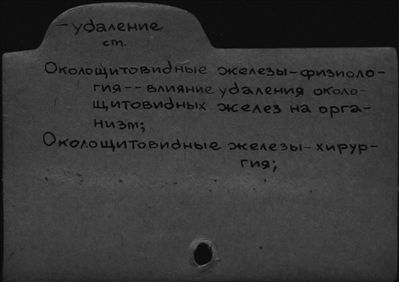 -удаление
ст.
Околощитовидные железы-физиоло-
гия--влияние удаления около-
щитовидных желез на орга-
низм;
Околощитовидные железы-хирур-
гия;